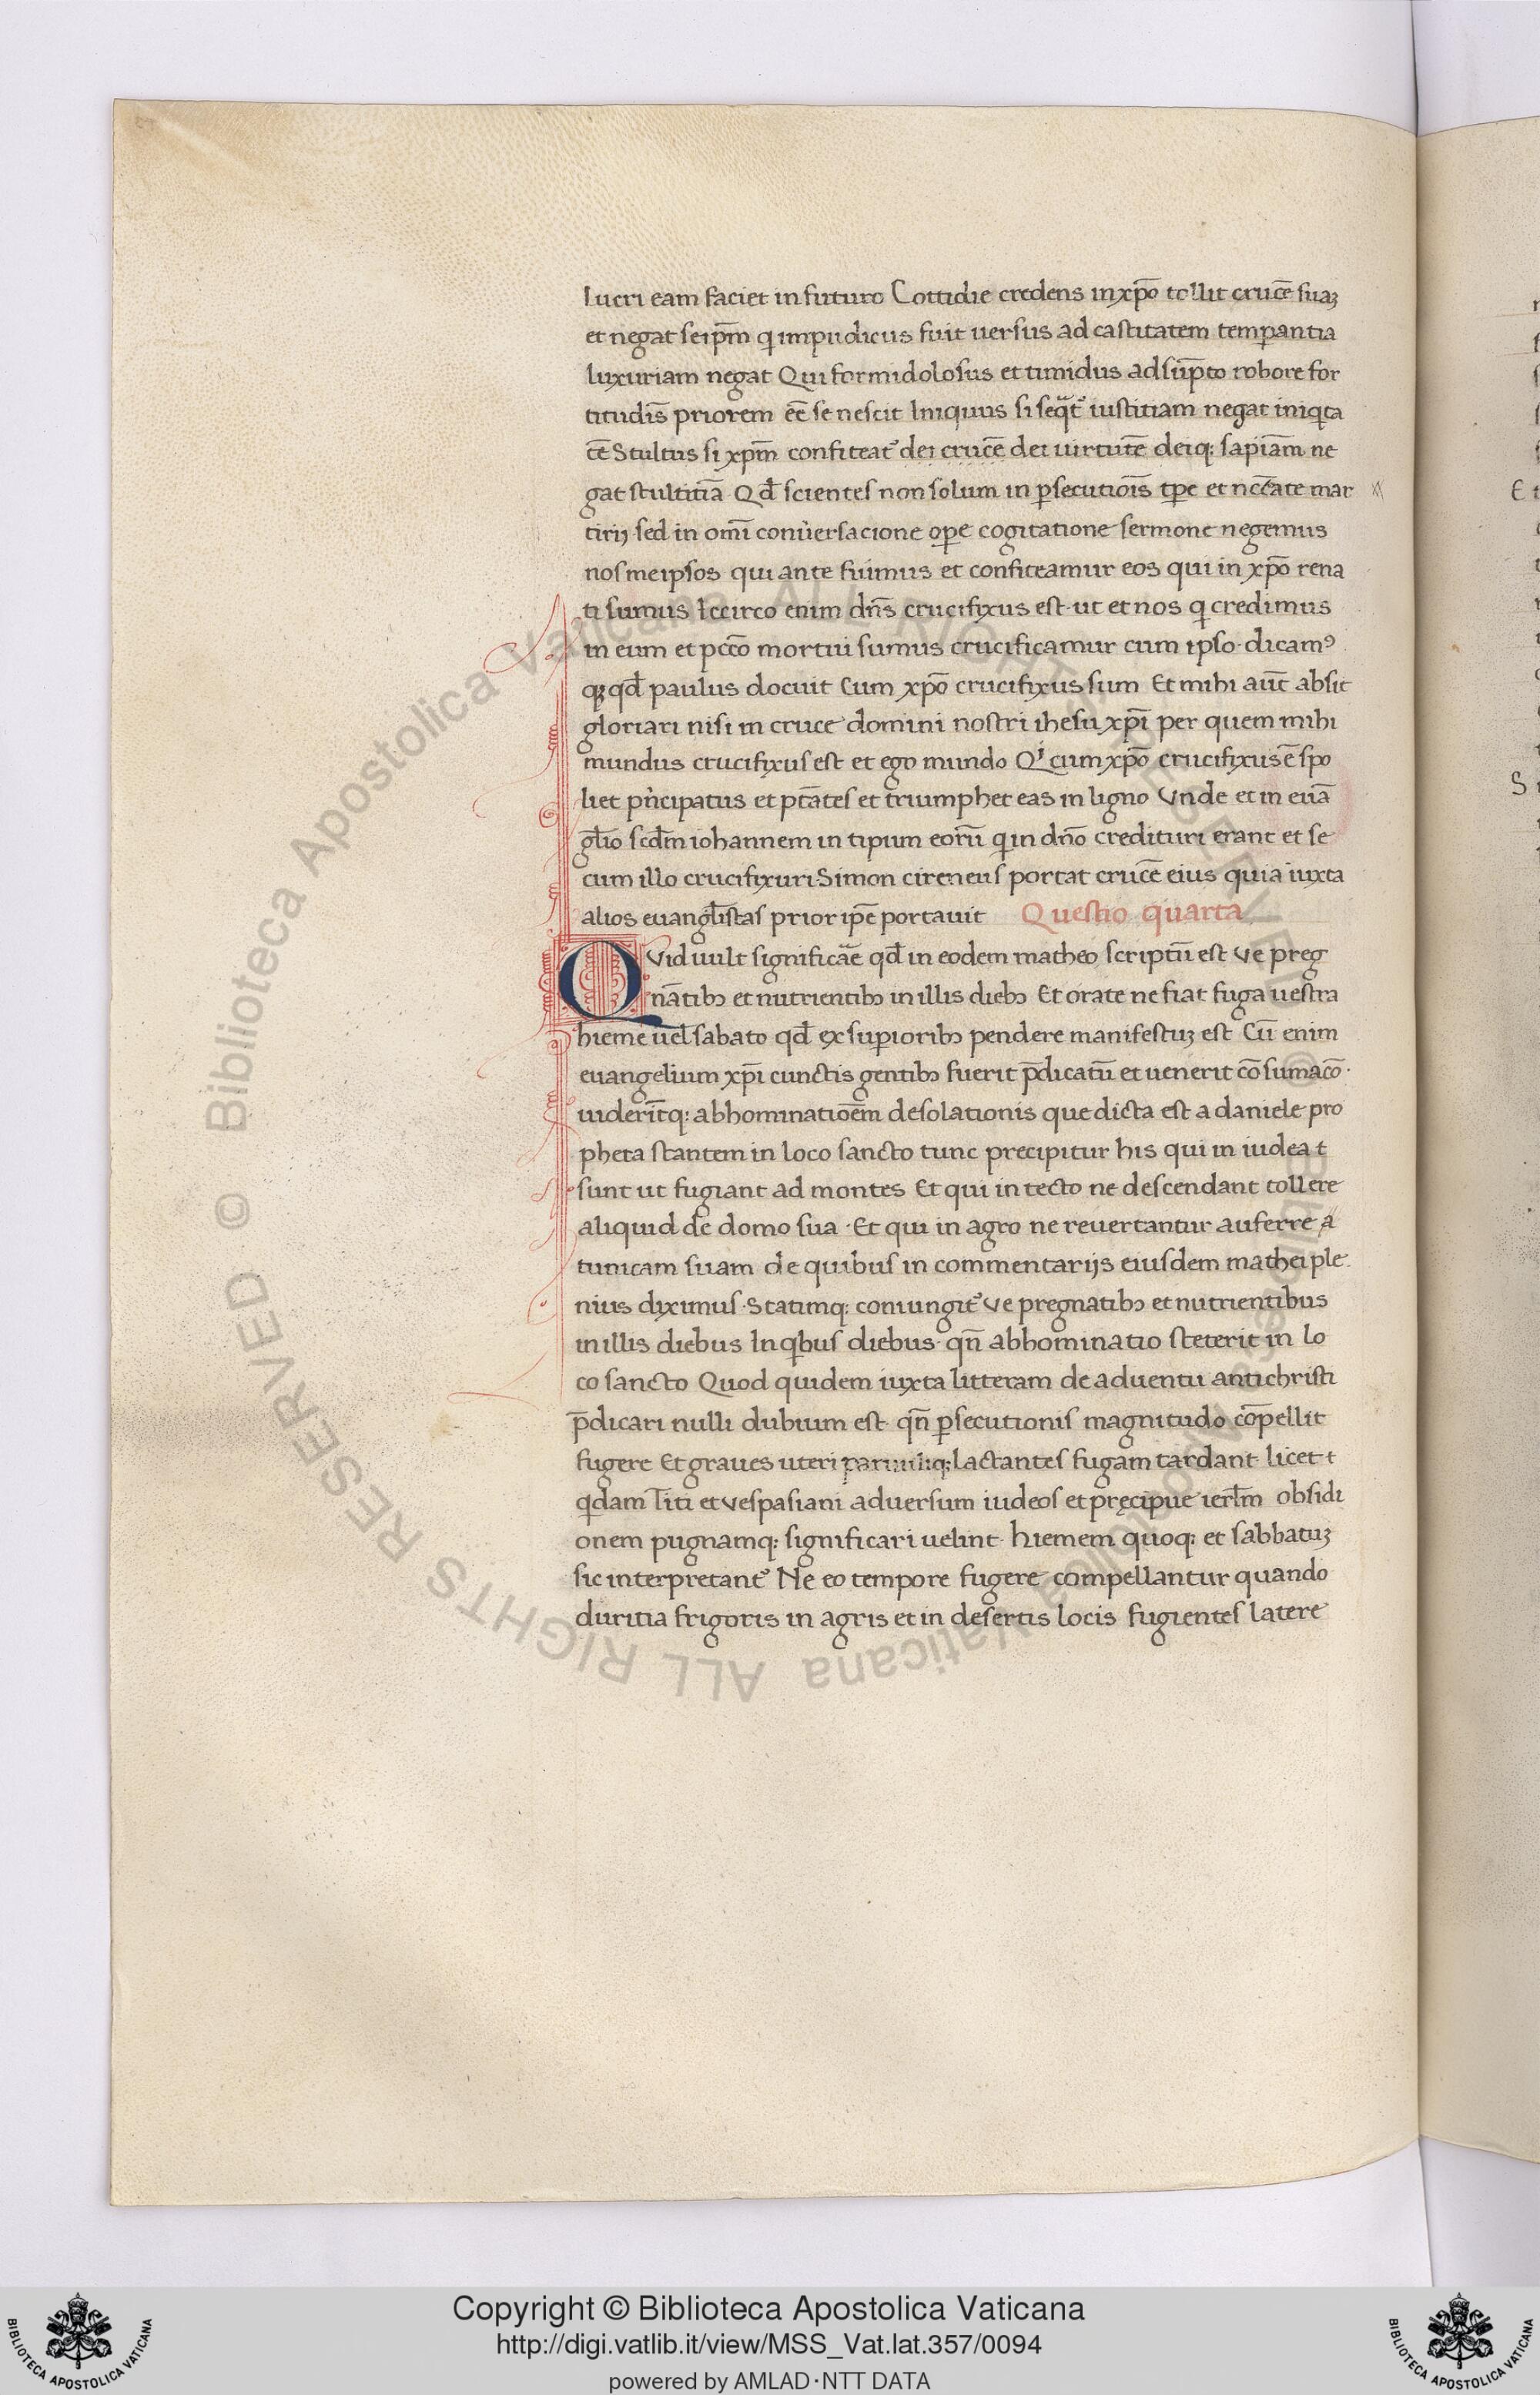 lucri eam faciet in futuro Cottidie credens in xp̄o tollit crucē suaꝫ
et negat seip̄m qͥ impudicus fuit uersus ad castitatem temperantia
luxuriam negat Qui formidolosus et timidus adsūpto robore for
titudīs priorem eē se nescit Iniquus si seqͣt᷒ iustitiam negat iniqͥta
tē Stultus si xp̄m confiteat᷒ dei crucē dei uirtutē deiq; sapīam ne
gat stultitiā Qd̄ scientes non solum in ꝑsecutiōis tꝑe et nccāte mar
tirij sed in omī conuersacione oꝑe cogitatione sermone negemus
nosmeipsos qui ante fuimus et confiteamur eos qui in xp̄o rena
ti sumus Iccirco enim dn̄s crucifixus est ut et nos qͥ credimus
in eum et pcc̄o mortui sumus crucificamur cum ipso dicamꝰ
qꝫ qd̄ paulus docuit Cum xp̄o crucifixus sum Et mihi aūt absit
gloriari nisi in cruce domini nostri ihesu xp̄i per quem mihi
mundus crucifixus est et ego mundo Qͥ cum xp̄o crucifixus ē spo
liet pͥncipatus et ptātes et triumphet eas in ligno Vnde et in euā
gl̄io scd̄m iohannem in tipum eorū qͥ in dn̄o credituri erant et se
cum illo crucifixuri Simon cireneus portat crucē eius quia iuxta
alios euangl̄istas prior ip̄e portauit Questio quarta
QVid uult significāe qd̄ in eodem matheo scriptū est Ve preg
nātibꝫ et nutrientibꝫ in illis diebꝫ Et orate ne fiat fuga uestra
hieme uel sabato qd̄ ex suꝑioribꝫ pendere manifestuꝫ est Cū enim
euangelium xp̄i cunctis gentibꝫ fuerit p̄dicatū et uenerit cōsumacō
uiderītq; abhominatiōem desolationis que dicta est a daniele pro
pheta stantem in loco sancto tunc precipitur his qui in iudea t
sunt ut fugiant ad montes Et qui in tecto ne descendant tollere
aliquid de domo sua Et qui in agro ne reuertantur auferre a
tunicam suam de quibus in commentarijs eiusdem mathei ple
nius diximus Statimq; coniungit᷒ Ve pregnātibꝫ et nutrientibus
in illis diebus In qͥbus diebus qn̄ abhominatio steterit in lo
co sancto Quod quidem iuxta litteram de aduentu antichristi
p̄dicari nulli dubium est qn̄ ꝑsecutionis magnitudo cōpellit
fugere Et graues uteri paruuliq; lactantes fugam tardant licet t
qͥdam Titi et Vespasiani aduersum iudeos et pręcipue ierl̄m obsidi
onem pugnamq; significari uelint hiemem quoq; et sabbatuꝫ
sic interpretant᷒ Ne eo tempore fugere compellantur quando
duritia frigoris in agris et in desertis locis fugientes latere
Copyright © Biblioteca Apostolica Vaticana
http://digi.vatlib.it/view/MSS_Vat.lat.357/0094
powered by AMLAD·NTT DATA